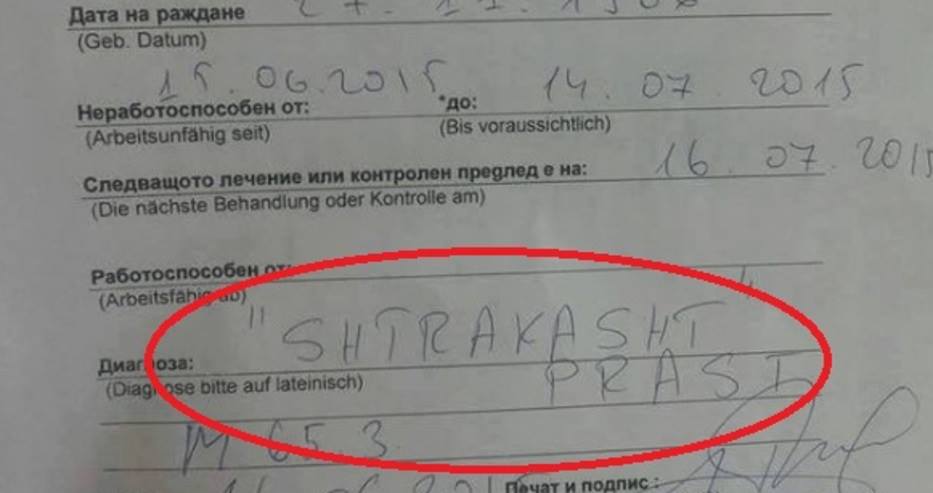 Дата на раждане
(Geb. Datum)
15.06.2015 14.07.2015
Неработоспособен от: *до:
(Arbeitsunfähig seit) (Bis voraussichtlich)
Следващото лечение или контролен преглед е на: 16.07.2015
(Die nächste Behandlung oder Kontrolle am)
Работоспособен от:
(Arbeitsfähig ab)
"SHTRAKASHT"
Диагноза: PRAST
(Diagnose bitte auf lateinisch)
M 65.3
Печат и подпис: